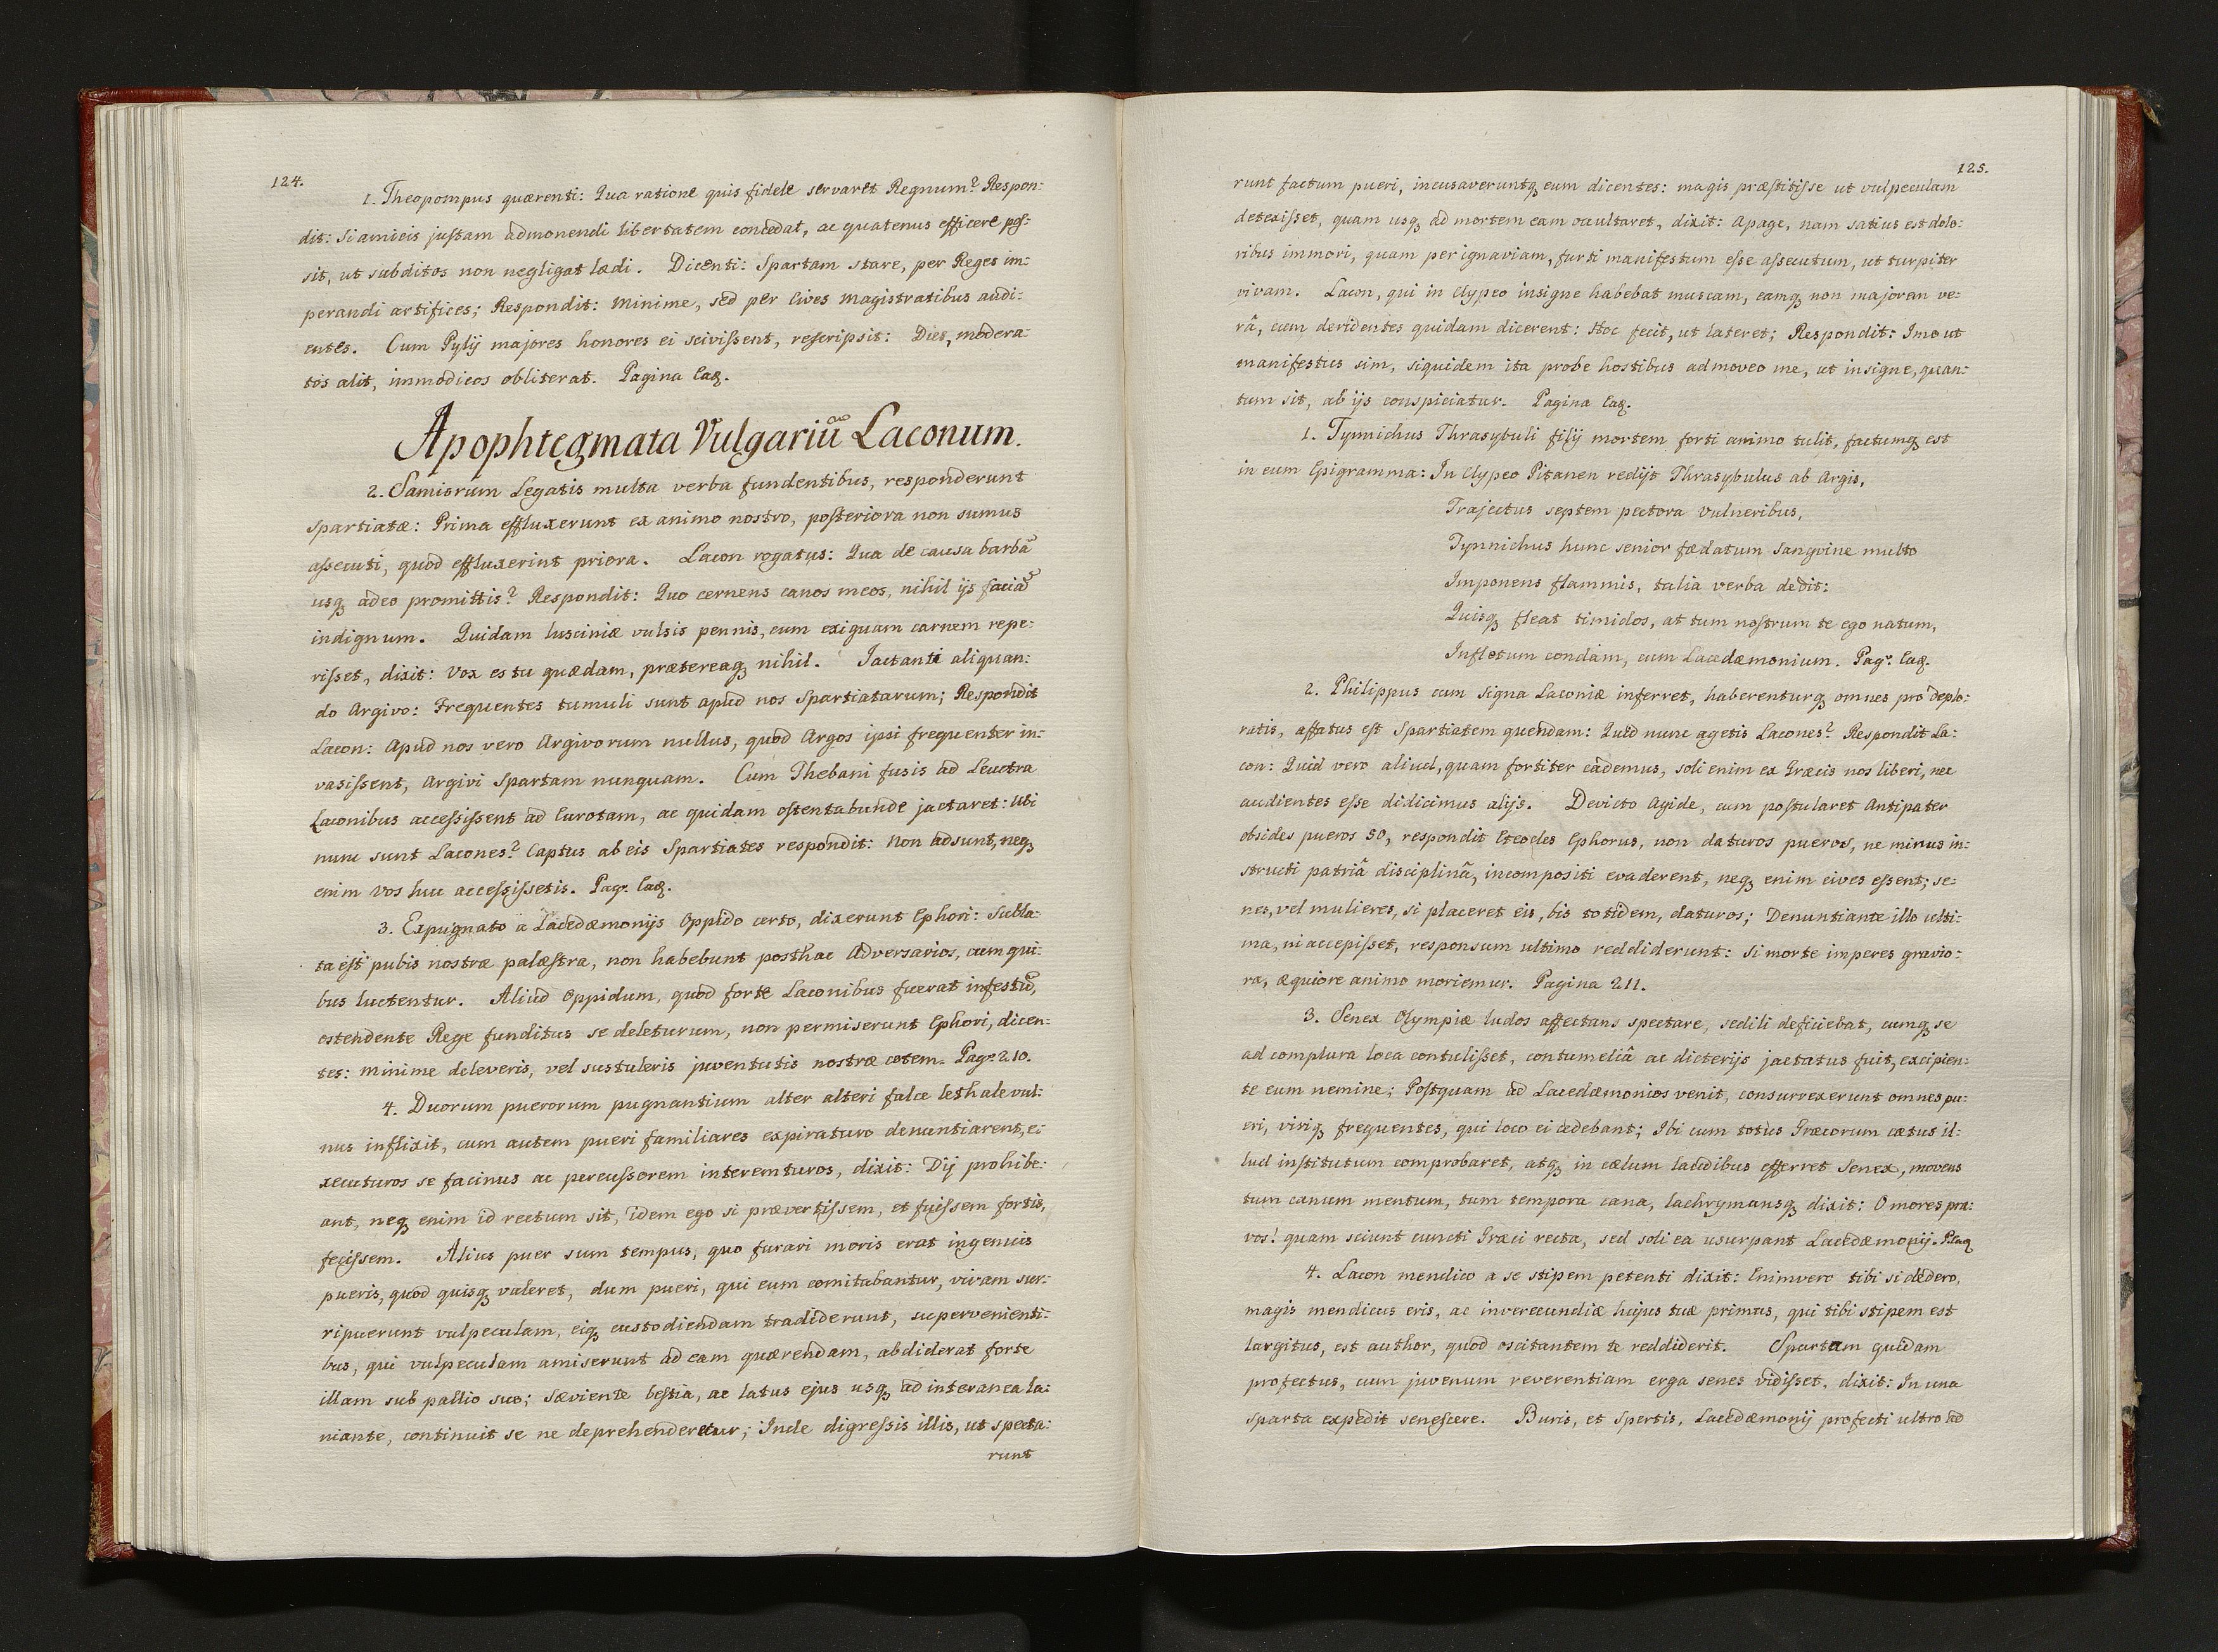 124.
1. Theopompus quærenti: Qua ratione quis fidele servaret Regnum? Respon:
dit: Si amicis justam admonendi libertatem concedat, ac quatenus efficere pos:
sit, ut subditos non negligat lædi. Dicenti: Spartam stare, per Reges im:
perandi artifices; Respondit: Minime, sed per Cives Magistratibus audi:
entes. Cum Pylij majores honores ei scivissent, rescripsit: Dies, modera:
tos alit, immodicos obliterat. Pagina Eaq.
Apophtegmata Vulgariū Laconum.
2. Samiorum Legatis multa verba fundentibus, responderunt
Spartiatæ: Prima effluxerunt ex animo nostro, posteriora non sumus
assecuti, quod effluxerint priora. Lacon rogatus: Qua de causa barbā
usq adeo promittis? Respondit: Quo cernens canos meos, nihil ijs faciā
indignum. Quidam lusciniæ vulsis pennis, cum exiguam carnem repe:
risset, dixit: Vox es tu quædam, prætereaq nihil. Jactanti aliquan:
do Argivo: Frequentes tumuli sunt apud nos Spartiatarum; Respondit
Lacon: Apud nos vero Argivorum nullus, quod Argos ipsi frequenter in:
vasissent, Argivi Spartam nunquam. Cum Thebani fusis ad Leuctra
Laconibus accessissent ad Eurotam, ac quidam ostentabunde jactaret: Ubi
nunc sunt Lacones? Captus ab eis Spartiates respondit: Non adsunt, neq
enim vos huc accessissetis. Pag. Eaq.
3. Expugnato a Lacedæmonijs Oppido certo, dixerunt Ephori: Subla:
ta est pubis nostræ palæstra, non habebunt posthac Adversarios, cum qui:
bus luctentur. Aliud Oppidum, quod forte Laconibus fuerat infestū,
ostendente Rege funditus se deleturum, non permiserunt Ephori, dicen:
tes: Minime deleveris, vel sustuleris juventutis nostræ cotem. Pag. 210.
4. Duorum puerorum pugnantium alter alteri falce lethale vul:
nus inflixit, cum autem pueri familiares expiraturo denuntiarent, e:
xecuturos se facinus ac percussorem interemturos, dixit: Dij prohibe:
ant, neq enim id rectum sit, idem ego si prævertissem, et fuissem fortis,
fecissem. Alius puer sum tempus, quo furari moris erat ingenuis
pueris, quod quisq valeret, dum pueri, qui eum comitabantur, vivam sur:
ripuerunt vulpeculam, eiq custodiendam tradiderunt, supervenienti:
bus, qui vulpeculam amiserunt ad eam quærendam, abdiderat forte
illam sub pallio suo; Sæviente bestia, ac latus ejus usq ad interanea la:
niante, continuit se ne deprehenderetur; Inde digressis illis, ut specta:
runt
125.
runt factum pueri, incusaveruntq eum dicentes: magis præstitisse ut vulpeculam
detexisset, quam usq ad mortem eam occultaret, dixit: Apage, nam satius est dolo:
ribus immori, quam per ignaviam, furti manifestum esse assecutum, ut turpiter
vivam. Lacon, qui in Clypeo insigne habebat muscam, eamq non majorem ve:
râ, cum deridentes quidam dicerent: Hoc fecit, ut lateret; Respondit: Imo ut
manifestus sim, siquidem ita probe hostibus admoveo me, ut insigne, quan:
tum sit, ab ijs conspiciatur. Pagina Eaq.
1. Tynnichus Thrasybuli filij mortem forti animo tulit, factumq est
in eum Epigramma: In Clypeo Pitanen redijt Thrasybulus ab Argis,
Trajectus septem pectora Vulneribus,
Tynnichus hunc senior fœdatum Sangvine multo
Imponens flammis, talia verba dedit:
Quisq fleat timidos, at tum nostrum te ego natum,
Infletum condam, cum Lacedæmonium. Pag. Eaq.
2. Philippus cum signa Laconiæ inferret, haberenturq omnes pro deplo:
ratis, affatus est Spartiatem quendam: Quid nunc agetis Lacones? Respondit La:
con: Quid vero aliud, quam fortiter cademus, soli enim ex Græcis nos liberi, nec
audientes esse didicimus alijs. Devicto Agide, cum postularet Antipater
obsides pueros 50, respondit Eteocles Ephorus, non daturos pueros, ne minus in:
structi patriâ disciplinâ, incompositi evaderent, neq enim cives essent; se:
nes, vel mulieres, si placeret eis, bis totidem, daturos; Denuntiante illo ulti:
ma, ni accepisset, responsum ultimo reddiderunt: Si morte imperes gravio:
ra, æquiore animo moriemur. Pagina 211.
3. Senex Olympiæ ludos affectans spectare, sedili deficiebat, cumq se
ad complura loca contulisset, contumeliâ ac dicterijs jactatus fuit, excipien:
te eum nemine; Postquam ad Lacedæmonios venit, consurrexerunt omnes pu:
eri, viriq frequentes, qui loco ei cedebant; Ibi cum totus Græcorum cœtus il:
lud institutum comprobaret, atq in cœlum laudibus efferret Senex, movens
tum canum mentum, tum tempora cana, lachrymansq dixit: O mores pra:
vos! quam sciunt cuncti Græci recta, sed soli ea usurpant Lacedæmonij. P. Eaq
4. Lacon mendico a se stipem petenti dixit: Enimvero tibi si dedero,
magis mendicus eris, ac inverecundiæ hujus tuæ primus, qui tibi stipem est
largitus, est author, quod oscitantem te reddiderit. Spartam quidam
profectus, cum juvenum reverentiam erga senes vidisset, dixit: In una
Sparta expedit senescere. Buris, et Spertis, Lacedæmonij profecti ultro ad